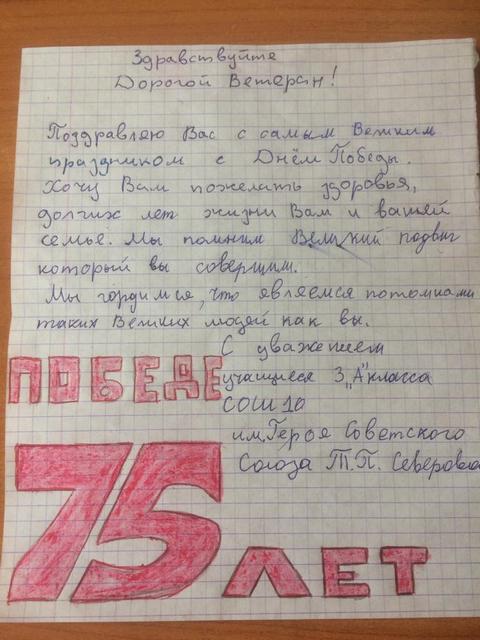 Здравствуйте
Дорогой Ветеран!
Поздравляю Вас с самым Великим
праздником с Днём Победы.
Хочу Вам пожелать здоровья,
долгих лет жизни Вам и вашей
семье. Мы помним Великий подвиг
который вы совершим.
Мы гордимся, что являемся потомками
таких Великих людей как вы.
С уважением
учащиеся 3 „А" класса
СОШ 10
им. Героя Советского
Союза Т.П. Северова
ПОБЕДЕ
75
ЛЕТ